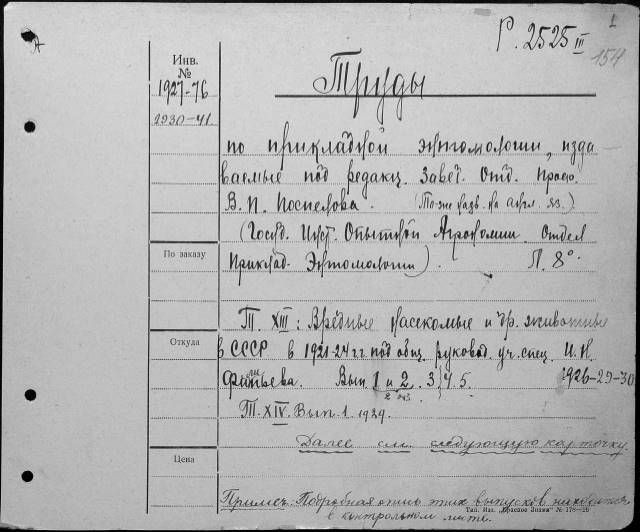 Р. 2525 III
1
154
А
Инв.
№
1927-76
2930-41.
Труды
по прикладной энтомологии, изда
ваемые под редакц. Завед. Отд. Проф.
В. П. Поспелова. (То-же назв. на англ. яз.)
(Госуд. Инст. Опытной Агрономии. Отдел
По заказу
Приклад. Энтомологии). Л. 8°.
Т. XIII: Вредные насекомые и др. животные
Откуда
в СССР в 1921-24 г.г. под общ. руковод. уч. спец. И. Н.
Филипьева. Вып. 1 и 2. 3, 4, 5. 1926-29-30
2 экз.
Т. XIV. Вып. 1. 1929.
Далее см. следующую карточку.
Цена
Примеч. Подробная опись этих выпусков находится
Тип. Изд. „Красное Знамя“ № 178—26
в контрольном листе.